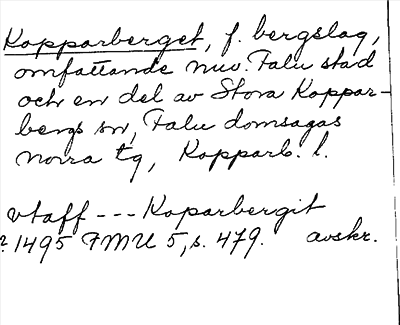 Kopparberget, f. bergslag,
omfattande nuv. Falu stad
och en del av Stora Koppar-
bergs sn, Falu domsagas
norra tg, Kopparb. l.
vtaff --- Koparbergit
? 1495 FMU 5, s. 479. avskr.